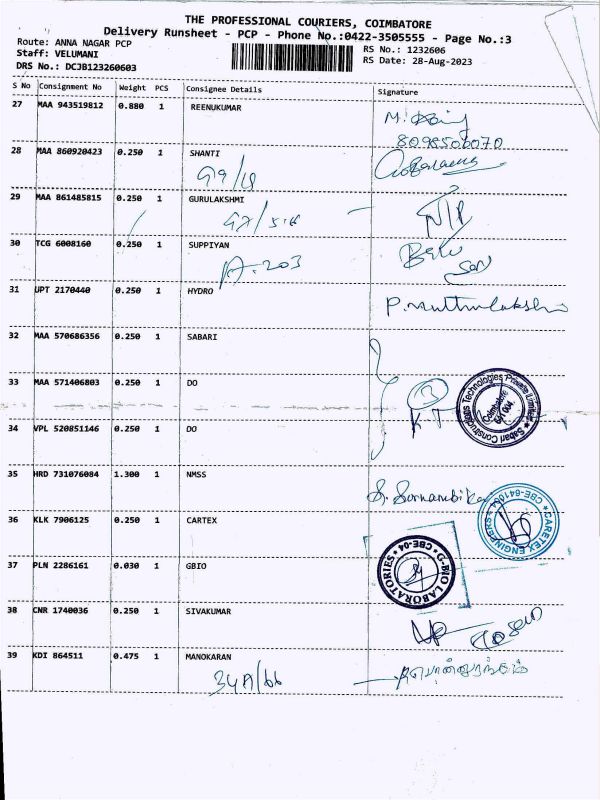 THE PROFESSIONAL COURIERS, COIMBATORE
Delivery Runsheet - PCP - Phone No.:0422-3505555 - Page No.:3
Route: ANNA NAGAR PCP
RS No.: 1232606
Staff: VELUMANI
RS Date: 28-Aug-2023
DRS No.: DCJB123260603
S No Consignment No Weight PCS Consignee Details Signature
27 MAA 943519812 0.880 1 REENUKUMAR
8098506070
28 MAA 860920423 0.250 1 SHANTI
29 MAA 861485815 0.250 1 GURULAKSHMI
30 TCG 6008160 0.250 1 SUPPIYAN
A-203
31 UPT 2170440 0.250 1 HYDRO
P.Muthulakshmi
32 MAA 570686356 0.250 1 SABARI
33 MAA 571406803 0.250 1 DO
Sabari Constructions Technologies Private Limited
Coimbatore
641 004.
34 VPL 520851146 0.250 1 DO
35 HRD 731076084 1.300 1 NMSS
S. Sornambika
36 KLK 7906125 0.250 1 CARTEX
37 PLN 2286161 0.030 1 GBIO
G-BIO LABORATORIES
CBE-04
38 CNR 1740036 0.250 1 SIVAKUMAR
39 KDI 864511 0.475 1 MANOKARAN
34A/66